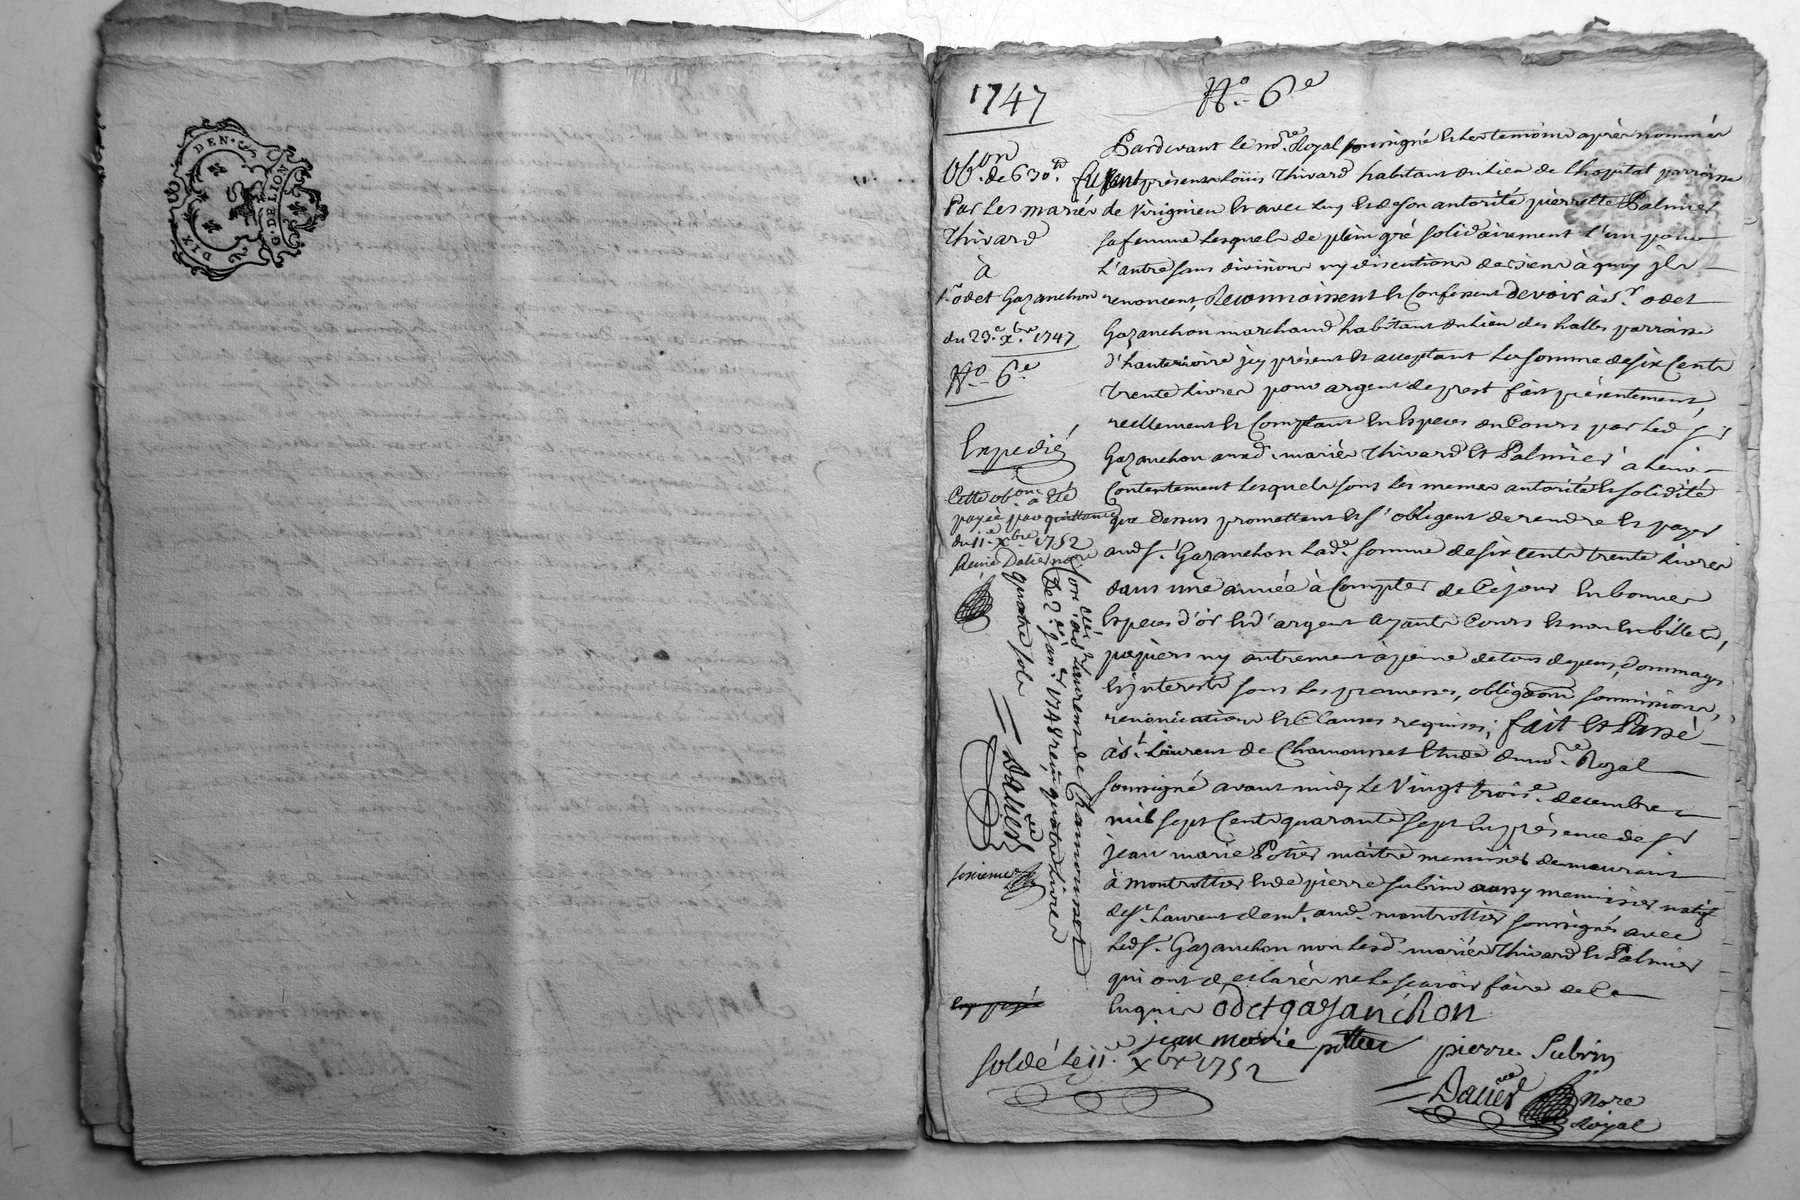 DIX DEN.
G. DE LION
1747
No. 6e
obon. de 630tt
Par Les mariés
Thivard
à
Sr. odet Gazanchon
du 23e. Xbre. 1747
No. 6e
Expedié
Cette obon. a Eté
payée par quittance
du 11e. Xbre 1752
Dalier nore
Con˜lé à St. Laurent de Chamousset
Le 2e. janer. 1748 reçu quatre Livres
quatre sols
Dalier
Expedié
Soldé Le 11e. Xbre 1752
Pardevant le nore. Royal soussigné Et Les temoins après nommés
furent présents Loüis Thivard habitant du lieu de Lhopital parroisse
de Virignieu Et avec Luy Et de son autorité pierrette Palmier
sa femme Lesquels de plein gré solidairement L'un pour
L'autre sans division ny discution de biens à quoy jls
renoncent, Reconnoissent Et Confessent devoir à Sr. odet
Gazanchon marchand habitant du lieu des halles parroisse
d'hauterivoire jcy présent Et acceptant La somme de six Cents
trente Livres pour argent de prest fait présentement,
reellement Et Comptant En Especes du Cours par Led. Sr
Gazanchon auxd. mariés Thivard Et Palmier à Leur
Contentement Lesquels sous Les memes autorité Et solidité
que Dessus promettent Et s'obligent de rendre Et payer
aud. Sr. Gazanchon Lade. somme de six cents trente Livres
dans une année à Compter de Cejour En bonnes
Especes d'or Et d'argent ayants Cours Et non En billets,
papiers ny autrement à peine de tous depens, dommages
Et jnterests sous Les promesses, obligaons soumissions,
renonciations Et Clauses requises; fait Et Passé
à St. Laurent de Chamousset Etude du nore. Royal
soussigné avant midy Le Vingt troise. decembre
mil sept Cents quarante sept En présence de Sr
jean marie Potier maitre menuisier demeurant
à montrottier Et de pierre Subrin aussy menuisier natif
de St. Laurent demt. aud. montrottier soussignés avec
Led. Sr. Gazanchon non Lesd. mariés Thivard Et Palmier
qui ont declarés ne Le scavoir faire de Ce
Enquis odet gazanchon
jean marie pottier pierre Subrin
Dalier nore
Royal